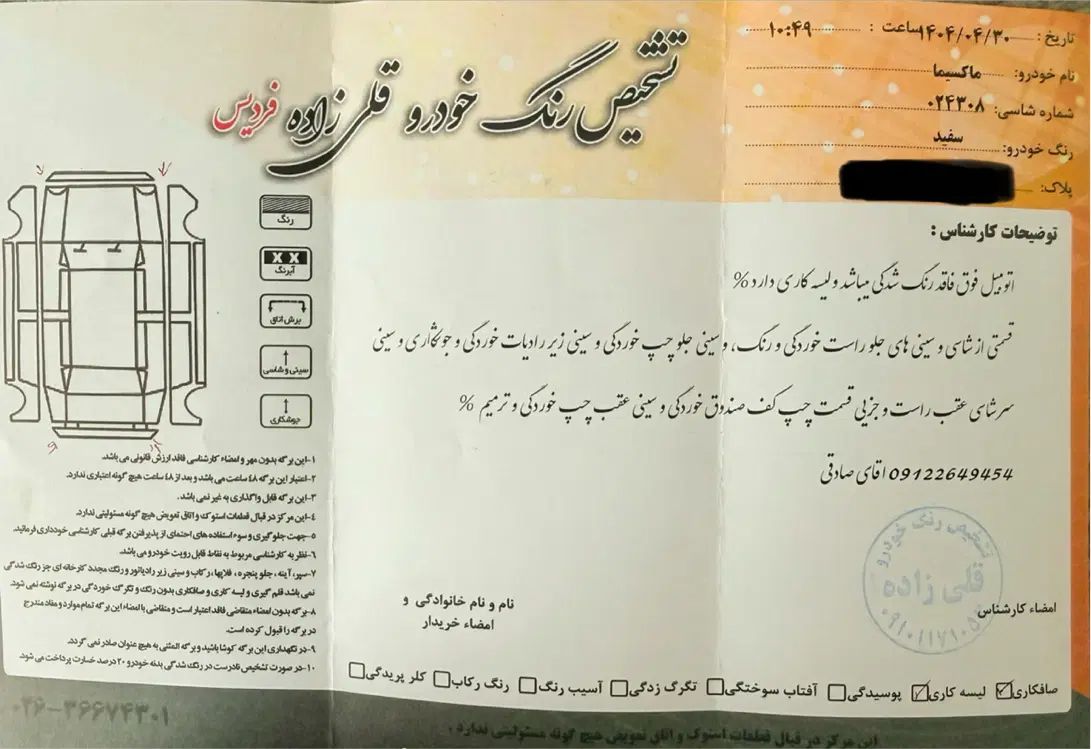 تشخیص رنگ خودرو قلی زاده فردیس
تاریخ: ۱۴۰۴/۰۴/۳۰ ساعت: ۱۰:۴۹
نام خودرو: ماکسیما
شماره شاسی: ۰۲۴۳۰۸
رنگ خودرو: سفید
پلاک:
توضیحات کارشناس:
اتومبیل فوق فاقد رنگ شدگی میباشد و لیسه کاری دارد %
قسمتی از شاسی و سینی های جلو راست خوردگی و رنگ، و سینی جلو چپ خوردگی و سینی زیر رادیات خوردگی و جوشکاری و سینی
سر شاسی عقب راست و جزیی قسمت چپ کف صندوق خوردگی و سینی عقب چپ خوردگی و ترمیم %
09122649454 اقای صادقی
رنگ
X X
آبرنگ
برش اتاق
سینی و شاسی
جوشکاری
۱-این برگه بدون مهر و امضاء کارشناسی فاقد ارزش قانونی می باشد.
۲-اعتبار این برگه ۴۸ ساعت می باشد و بعد از ۴۸ ساعت هیچ گونه اعتباری ندارد.
۳-این برگه قابل واگذاری به غیر نمی باشد.
۴-این مرکز در قبال قطعات استوک و اتاق تعویض هیچ گونه مسئولیتی ندارد.
۵-جهت جلوگیری و سوء استفاده های احتمالی از پذیرفتن برگه قبلی کارشناسی خودداری فرمائید.
۶-نظر به کارشناسی مربوط به نقاط قابل رویت خودرو می باشد.
۷-سپر، آینه، جلو پنجره، فلاپها، رکاب و سینی زیر رادیاتور و رنگ مجدد کارخانه ای جز رنگ شدگی
نمی باشد قلم گیری و لیسه کاری و صافکاری بدون رنگ و تگرگ خوردگی در برگه نوشته نمی شود.
۸-برگه بدون امضاء متقاضی فاقد اعتبار است و متقاضی با امضاء این برگه تمام موارد و مفاد مندرج
در برگه را قبول کرده است.
۹-در نگهداری این برگه کوشا باشید و برگه المثنی به هیچ عنوان صادر نمی گردد.
۱۰-در صورت تشخیص نادرست در رنگ شدگی بدنه خودرو ۲۰ درصد خسارت پرداخت می شود.
نام و نام خانوادگی و
امضاء خریدار
امضاء کارشناس
تشخیص رنگ خودرو
قلی زاده
صافکاری لیسه کاری پوسیدگی آفتاب سوختگی تگرگ زدگی آسیب رنگ رنگ رکاب کلر پریدگی
۰۲۶-۳۶۶۷۴۳۰۱
این مرکز در قبال قطعات استوک و اتاق تعویض هیچ گونه مسئولیتی ندارد.